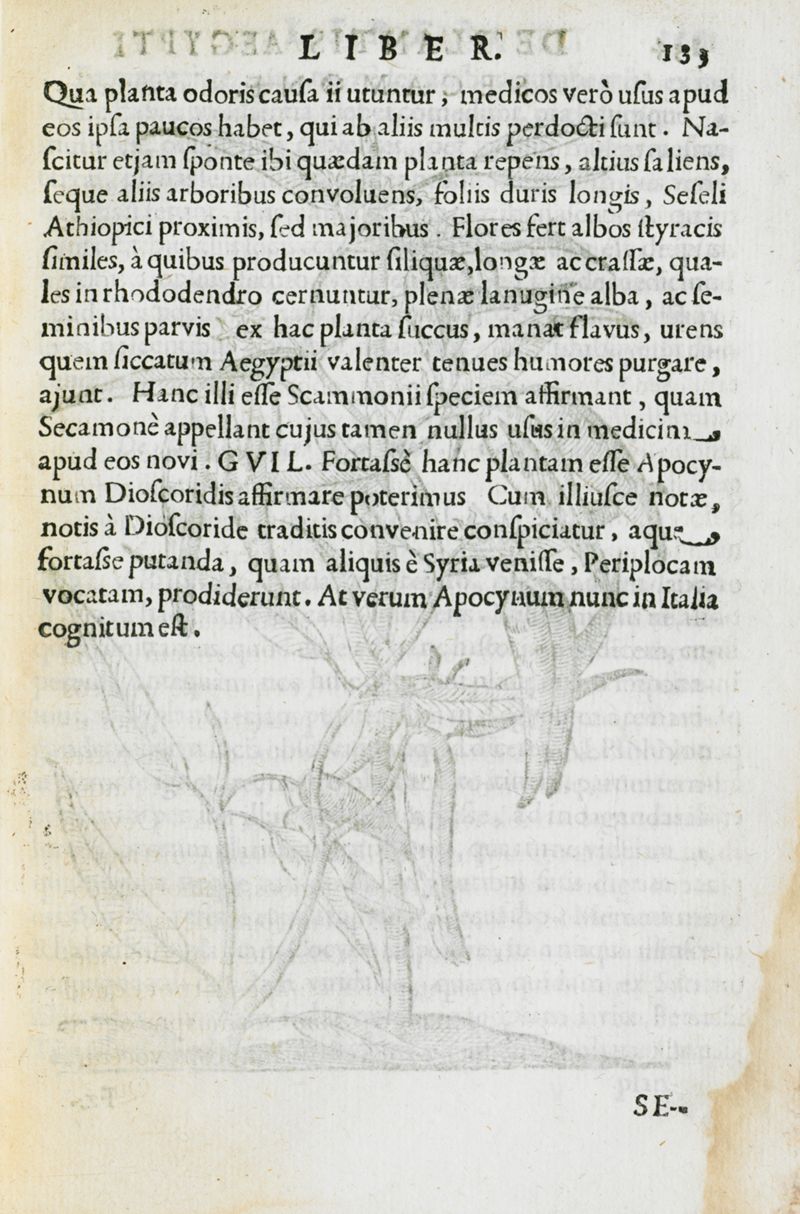 LIBER. 133
Qua planta odoris cauſa ii utuntur, medicos verò uſus apud
eos ipſa paucos habet, qui ab aliis multis perdocti ſunt. Na-
ſcitur etjam ſponte ibi quædam planta repens, altius ſaliens,
ſeque aliis arboribus convoluens, foliis duris longis, Seſeli
Athiopici proximis, ſed majoribus. Flores fert albos ſtyracis
ſimiles, à quibus producuntur ſiliquæ, longæ ac craſſæ, qua-
les in rhododendro cernuntur, plenæ lanugine alba, ac ſe-
minibus parvis ex hac planta ſuccus, manat flavus, urens
quem ſiccatum Aegyptii valenter tenues humores purgare,
ajunt. Hanc illi eſſe Scammonii ſpeciem affirmant, quam
Secamonè appellant cujus tamen nullus uſus in medicina,
apud eos novi. GVIL. Fortaſsè hanc plantam eſſe Apocy-
num Dioſcoridis affirmare poterimus Cum illiuſce notæ,
notis à Dioſcoride traditis convenire conſpiciatur, aquæ,
fortaſse putanda, quam aliquis è Syria veniſſe, Periplocam
vocatam, prodiderunt. At verum Apocynum nunc in Italia
cognitum eſt.
SE-